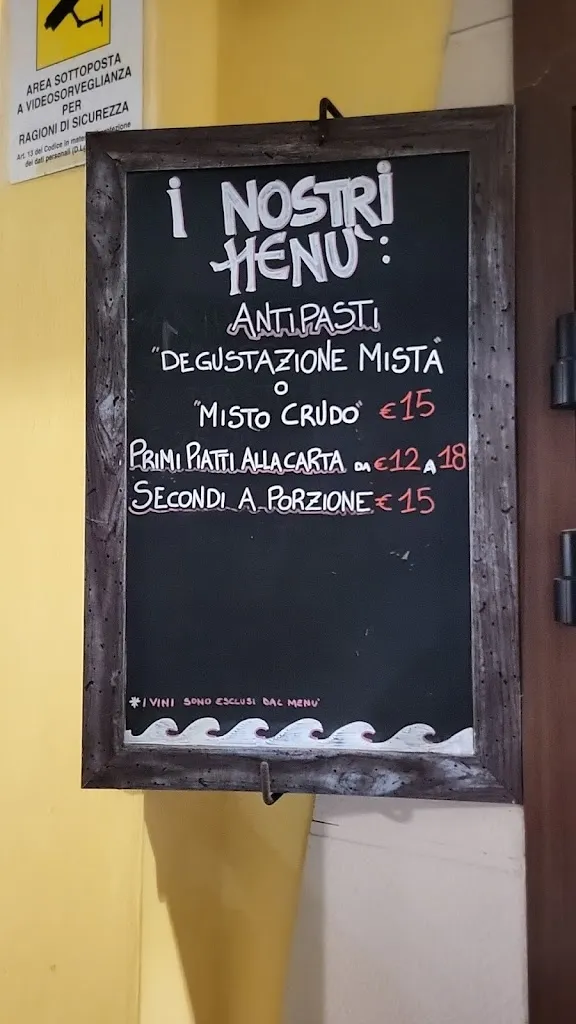 AREA SOTTOPOSTA
A VIDEOSORVEGLIANZA
PER
RAGIONI DI SICUREZZA
Art. 13 del Codice in
dei dati personali
I NOSTRI
MENU':
ANTIPASTI
"DEGUSTAZIONE MISTA"
O
"MISTO CRUDO" €15
PRIMI PIATTI ALLA CARTA DA €12 A 18
SECONDI A PORZIONE €15
*I VINI SONO ESCLUSI DAL MENU'